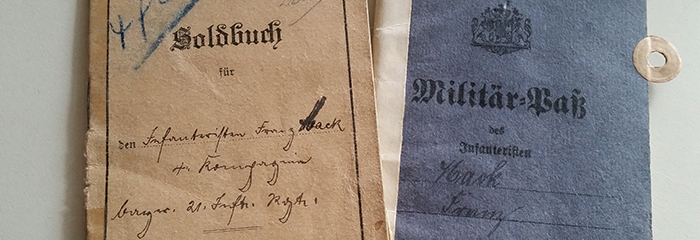 Soldbuch
für
den Infanteristen Franz Hack
4. Kompagnie
bayer. 21. Inftr. Regts.
Militär-Paß
des
Infanteristen
Hack
Franz